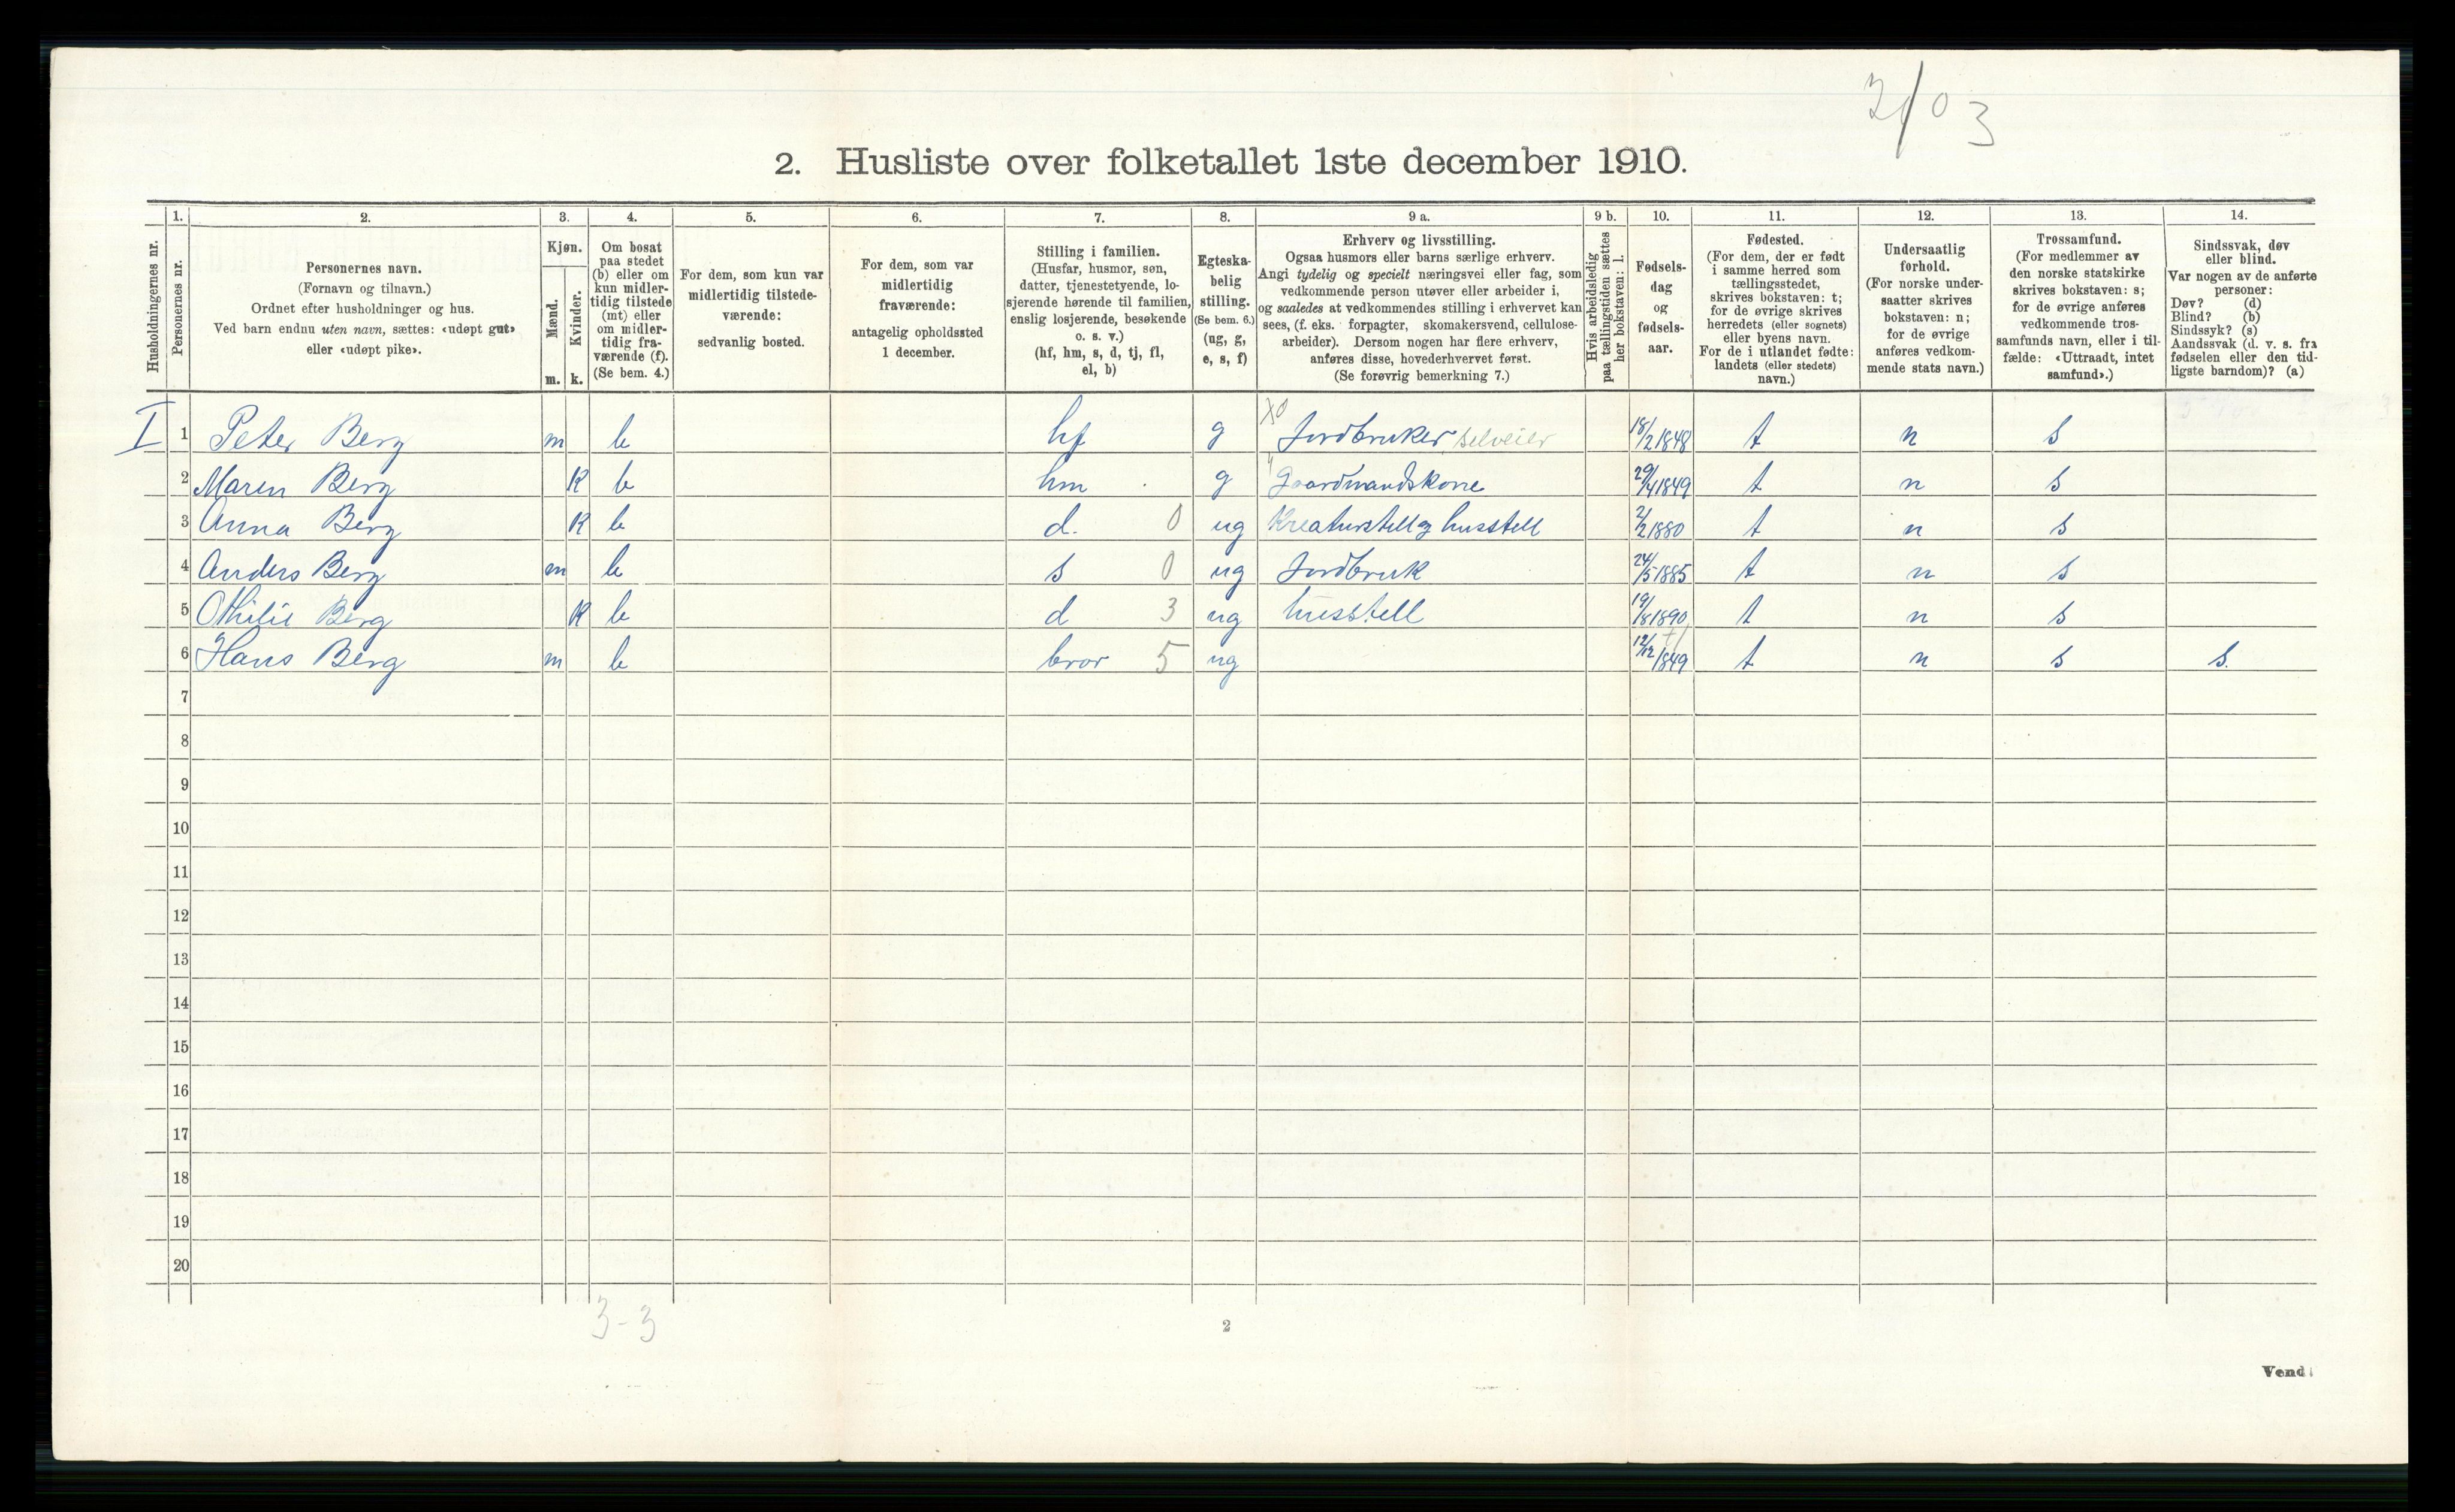 2/03
2. Husliste over folketallet 1ste december 1910.
1. 2. 3. 4. 5. 6. 7. 8. 9 a. 9 b. 10. 11. 12. 13. 14.
Husholdningernes nr.
Personernes nr.
Personernes navn.
(Fornavn og tilnavn.)
Ordnet efter husholdninger og hus.
Ved barn endnu uten navn, sættes: «udøpt gut»
eller «udøpt pike».
Kjøn.
Mænd.
Kvinder.
m. k.
Om bosat
paa stedet
(b) eller om
kun midler-
tidig tilstede
(mt) eller
om midler-
tidig fra-
værende (f).
(Se bem. 4.)
For dem, som kun var
midlertidig tilstede-
værende:
sedvanlig bosted.
For dem, som var
midlertidig
fraværende:
antagelig opholdssted
1 december.
Stilling i familien.
(Husfar, husmor, søn,
datter, tjenestetyende, lo-
sjerende hørende til familien,
enslig losjerende, besøkende
o. s. v.)
(hf, hm, s, d, tj, fl,
el, b)
Egteska-
belig
stilling.
(Se bem. 6.)
(ug, g,
e, s, f)
Erhverv og livsstilling.
Ogsaa husmors eller barns særlige erhverv.
Angi tydelig og specielt næringsvei eller fag, som
vedkommende person utøver eller arbeider i,
og saaledes at vedkommendes stilling i erhvervet kan
sees, (f. eks. forpagter, skomakersvend, cellulose-
arbeider). Dersom nogen har flere erhverv,
anføres disse, hovederhvervet først.
(Se forøvrig bemerkning 7.)
Hvis arbeidsledig
paa tællingstiden sættes
her bokstaven: l.
Fødsels-
dag
og
fødsels-
aar.
Fødested.
(For dem, der er født
i samme herred som
tællingsstedet,
skrives bokstaven: t;
for de øvrige skrives
herredets (eller sognets)
eller byens navn.
For de i utlandet fødte:
landets (eller stedets)
navn.)
Undersaatlig
forhold.
(For norske under-
saatter skrives
bokstaven: n;
for de øvrige
anføres vedkom-
mende stats navn.)
Trossamfund.
(For medlemmer av
den norske statskirke
skrives bokstaven: s;
for de øvrige anføres
vedkommende tros-
samfunds navn, eller i til-
fælde: «Uttraadt, intet
samfund».)
Sindssvak, døv
eller blind.
Var nogen av de anførte
personer:
Døv? (d)
Blind? (b)
Sindssyk? (s)
Aandssvak (d. v. s. fra
fødselen eller den tid-
ligste barndom)? (a)
I 1 Peter Berg m b hf g X0 Jordbruker, selveier 18/2 1848 t n s
2 Maren Berg k b hm g " Gaardmandskone 29/4 1849 t n s
3 Anna Berg k b d. 0 ug Kreaturstell og husstell 2/2 1880 t n s
4 Anders Berg m b s 0 ug Jordbruk 24/5 1885 t n s
5 Othilie Berg k b d 3 ug husstell 19/8 1890 t n s
6 Hans Berg m b bror 5 ug 12/12 1849 t n s s.
7
8
9
10
11
12
13
14
15
16
17
18
19
20
3-3
2
Vend!